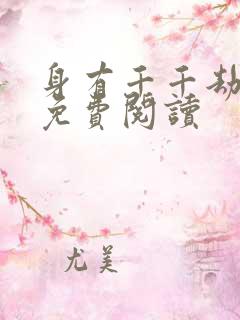 身有千千劫
免費閱讀
尤美